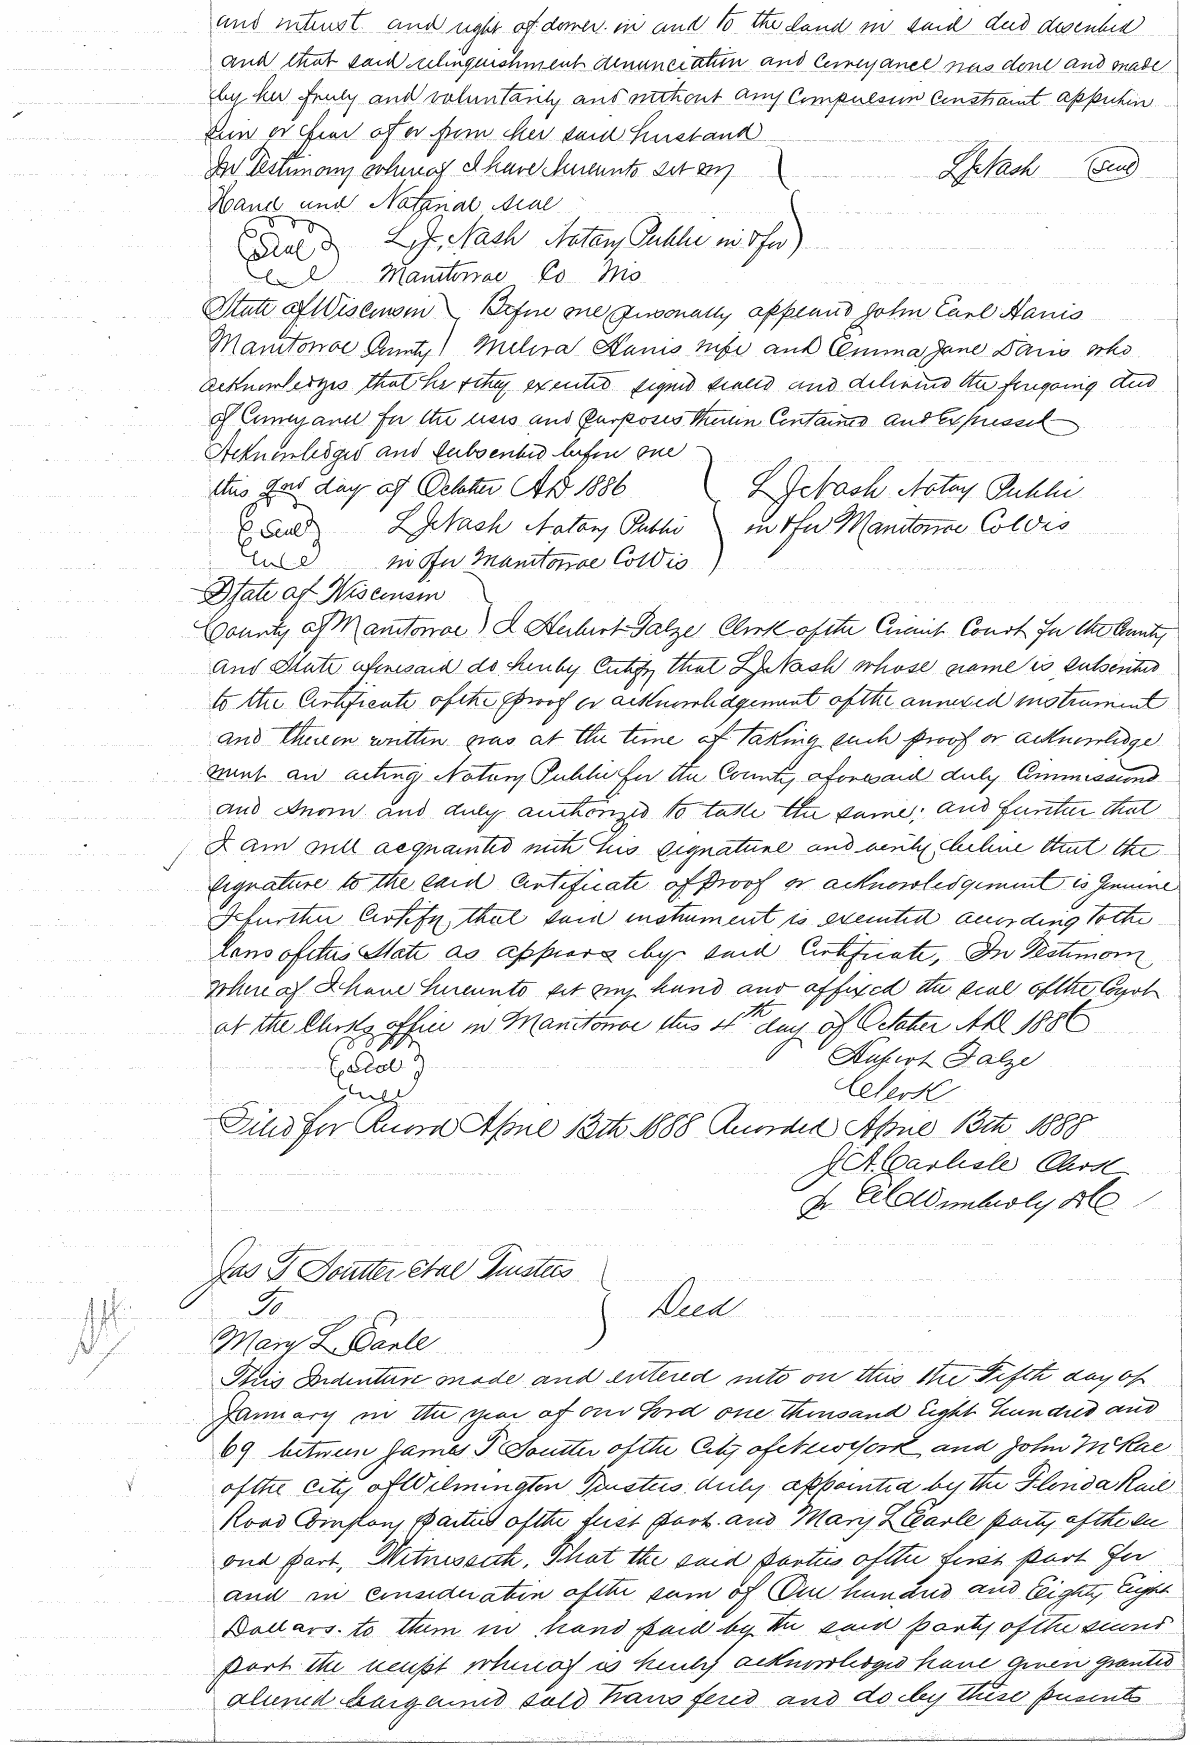 and interest and right of dower in and to the land in said deed described
and that said relinquishment renunciation and conveyance was done and made
by her freely and voluntarily and without any Compulsion Constraint apprehen
sion or fear of or from her said husband
In Testimony whereof I have hereunto set my
LJ Nash (Seal)
Hand and Notarial seal
Seal L. J. Nash Notary Public in & for
Manitowoc Co Wis
State of Wisconsin Before me personally appeared John Earl Harris
Manitowoc County Melva Harris wife and Emma Jane Davis who
acknowledges that he & they executed signed sealed and delivered the foregoing deed
of Conveyance for the uses and purposes therein Contained and Expressed
Acknowledged and subscribed before me
this 2nd day of October AD 1886 L J Nash Notary Public
Seal L J Nash Notary Public in & for Manitowoc Co Wis
in & for Manitowoc Co Wis
State of Wisconsin
County of Manitowoc I Hubert Falge Clerk of the Circuit Court for the County
and State aforesaid do hereby Certify that L J Nash whose name is subscribed
to the Certificate of the proof or acknowledgement of the annexed instrument
and thereon written was at the time of taking such proof or acknowledge
ment an acting Notary Public for the County aforesaid duly Commissioned
and sworn and duly authorized to take the same; and further that
I am well acquainted with his signature and verily believe that the
signature to the said Certificate of proof or acknowledgement is Genuine
I further Certify that said instrument is executed according to the
laws of this State as appears by said Certificate, In Testimony
where of I have hereunto set my hand and affixed the seal of the Court
at the Clerks office in Manitowoc this 4th day of October AD 1886
Seal Hubert Falge
Clerk
Filed for Record April 13th 1888 Recorded April 13th 1888
J A. Carlisle Clerk
Jas T Soutter et al Trustees
To Deed
Mary L. Earle
This Indenture made and entered into on this the Fifth day of
January in the year of our Lord one thousand Eight hundred and
69 between James T Soutter of the City of New York and John McRae
of the City of Wilmington Trustees duly appointed by the Florida Rail
Road Company parties of the first part and Mary L Earle party of the sec
ond part, Witnesseth, That the said parties of the first part for
and in consideration of the sum of One hundred and Eighty Eight
Dollars to them in hand paid by the said party of the second
part the receipt whereof is hereby acknowledged have given granted
aliened bargained sold transfered and do by these presents